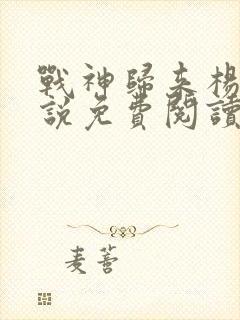 戰神歸來楊
說免費閱讀
麦蓍